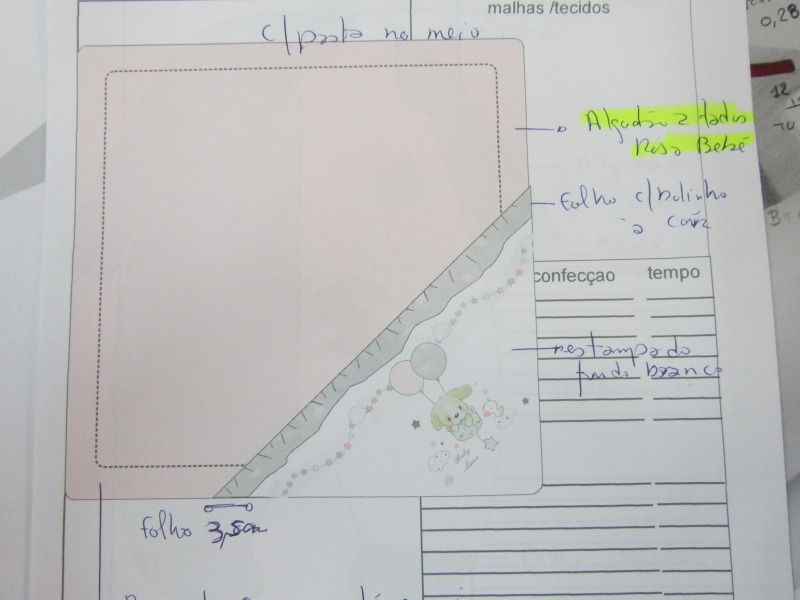 malhas /tecidos
c/pasta no meio
0,28
12
Algodão 2 lados
Rosa Bebé
Folho c/bolinha
à
confecçao tempo
estampado
fundo branco
Baby
Folho 3,5cm